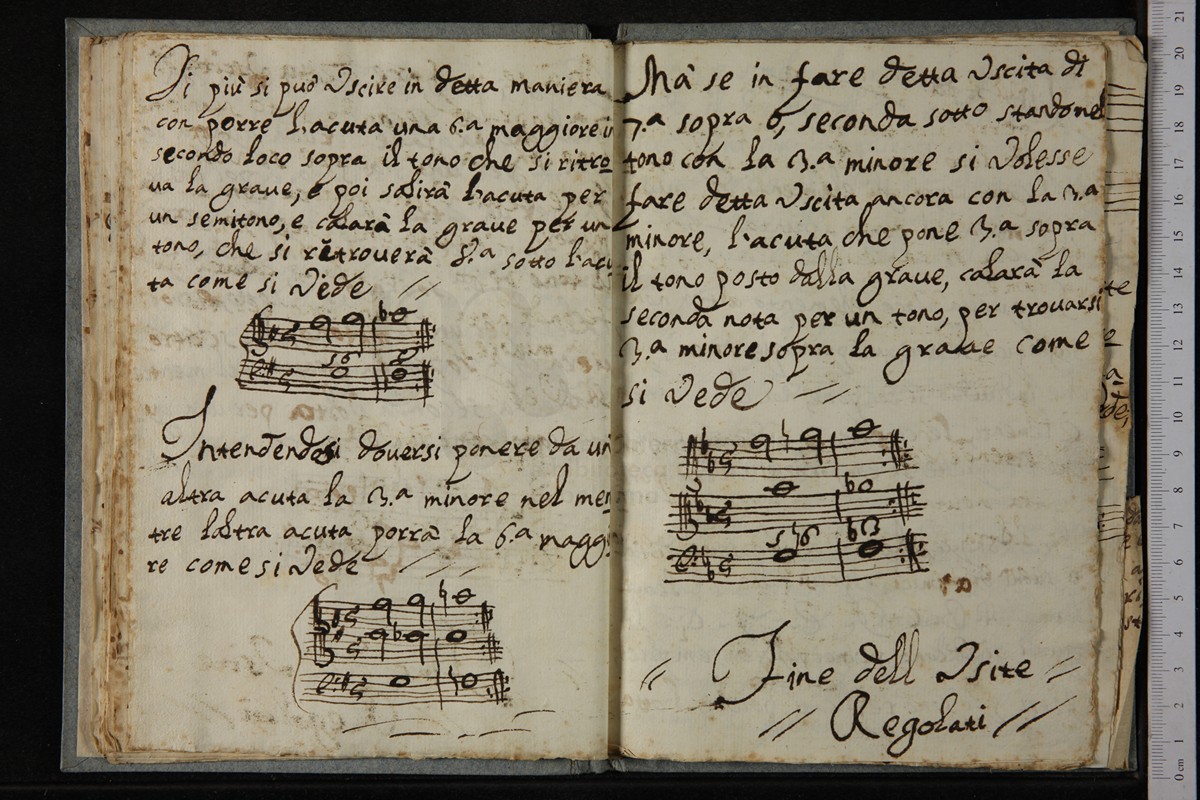 Di più si può Vscire in detta maniera
con porre l'acuta una 6.a maggiore in
secondo loco sopra il tono che si ritro
ua la graue, e poi salirà l'acuta per
un semitono, e calarà la graue per un
tono, che si ritrouerà 8.a sotto l'acu
ta come si Vede
Intendendosi douersi ponere da un
altra acuta la 3.a minore nel men
tre l'altra acuta porrà la 6.a maggi
re come si Vede
Mà se in fare detta Vscita di
7.a sopra ò, seconda sotto stando nel
tono con la 3.a minore si Volesse
fare detta Vscita ancora con la 3.a
minore, l'acuta che pone 3.a sopra
il tono posto dalla graue, calarà la
seconda nota per un tono, per trouarsi
3.a minore sopra la graue come
si Vede
Fine dell Vsite
Regolati